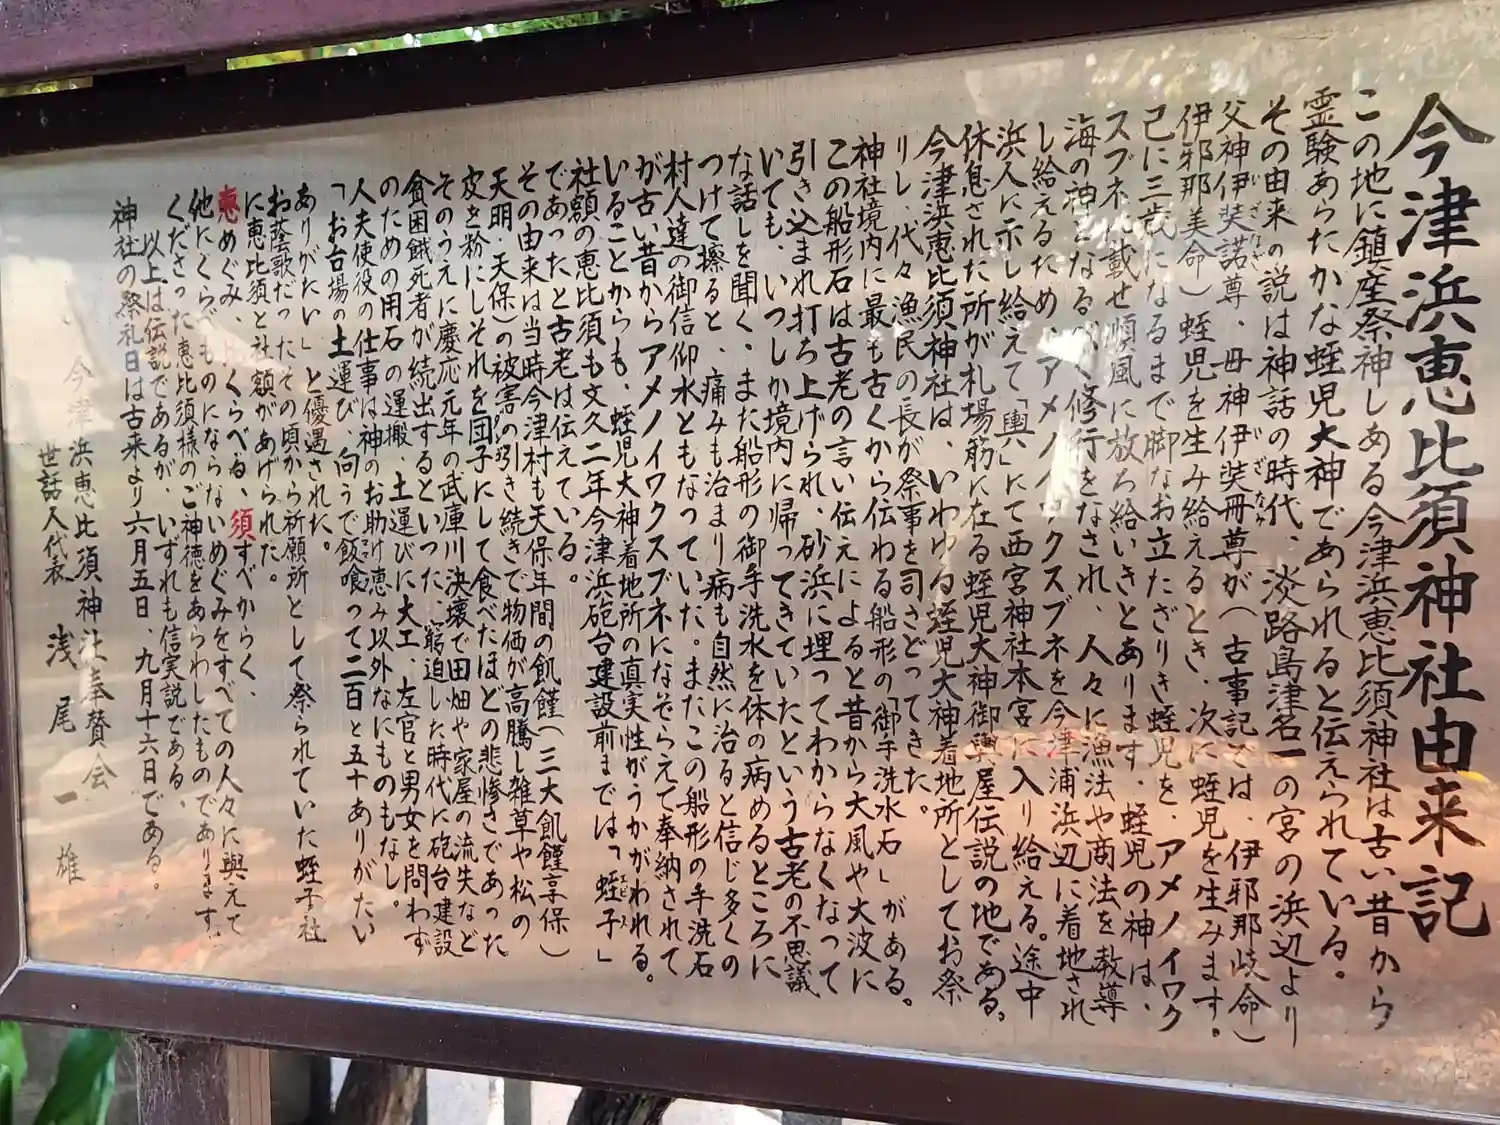 今津浜恵比須神社由来記
この地に鎮座祭神しある今津浜恵比須神社は古い昔から
霊験あらたかな蛭児大神であられると伝えられている。
その由来の説は神話の時代、淡路島津名一の宮の浜辺より
父神伊奘諾尊、母神伊奘冊尊が(古事記では、伊邪那岐命)
伊邪那美命)蛭児を生み給えるとき、次に蛭児を生みます。
己に三歳になるまで脚なお立たざりき蛭児を、アメノイワク
スブネに載せ順風に放ち給いきとあります。蛭児の神は、
海の神となるべく修行をなされ、人々に漁法や商法を教導
し給えるため、アメノイワクスブネを今津浦浜辺に着地され
浜人に示し給えて「輿」にて西宮神社本宮に入り給える。途中
休息された所が札場筋に在る蛭児大神御輿屋伝説の地である。
今津浜恵比須神社は、いわゆる蛭児大神着地所としてお祭
りし、代々漁民の長が祭事を司さどってきた。
神社境内に最も古くから伝わる船形の「御手洗水石」がある。
この船形石は古老の言い伝えによると昔から大風や大波に
引き込まれ打ち上げられ、砂浜に埋ってわからなくなって
いても、いつしか境内に帰ってきていたという古老の不思議
な話しを聞く、また船形の御手洗水を体の病めるところに
つけて擦ると、痛みも治まり病も自然に治ると信じ多くの
村人達の御信仰水ともなっていた。またこの船形の手洗石
が古い昔からアメノイワクスブネになぞらえて奉納されて
いることからも、蛭児大神着地所の真実性がうかがわれる。
社額の恵比須も文久二年今津浜砲台建設前までは「蛭子」
であったと古老は伝えている。
その由来は当時今津村も天保年間の飢饉(三大飢饉享保)
天明・天保)の被害の引き続きで物価が高騰し雑草や松の
皮を粉にしそれを団子にして食べたほどの悲惨さであった
そのうえに慶応元年の武庫川決壊で田畑や家屋の流失など
貧困餓死者が続出するといった、窮迫した時代に砲台建設
のための用石の運搬、土運びに大工、左官と男女を問わず
人夫使役の仕事は神のお助け恵み以外なにものもなし。
「お台場の土運び、向うで飯喰って二百と五十ありがたい
ありがたい」と優遇された。
お蔭歌だったその頃から祈願所として祭られていた蛭子社
に恵比須と社額があげられた。
恵めぐみ、比くらべる、須すべからく、
他にくらべものにならないめぐみをすべての人々に與えて
くださった恵比須様のご神徳をあらわしたものであります。
以上は伝説であるが、いずれも信実説である。
神社の祭礼日は古来より六月五日、九月十六日である。
今津浜恵比須神社奉賛会
世話人代表 浅尾一雄